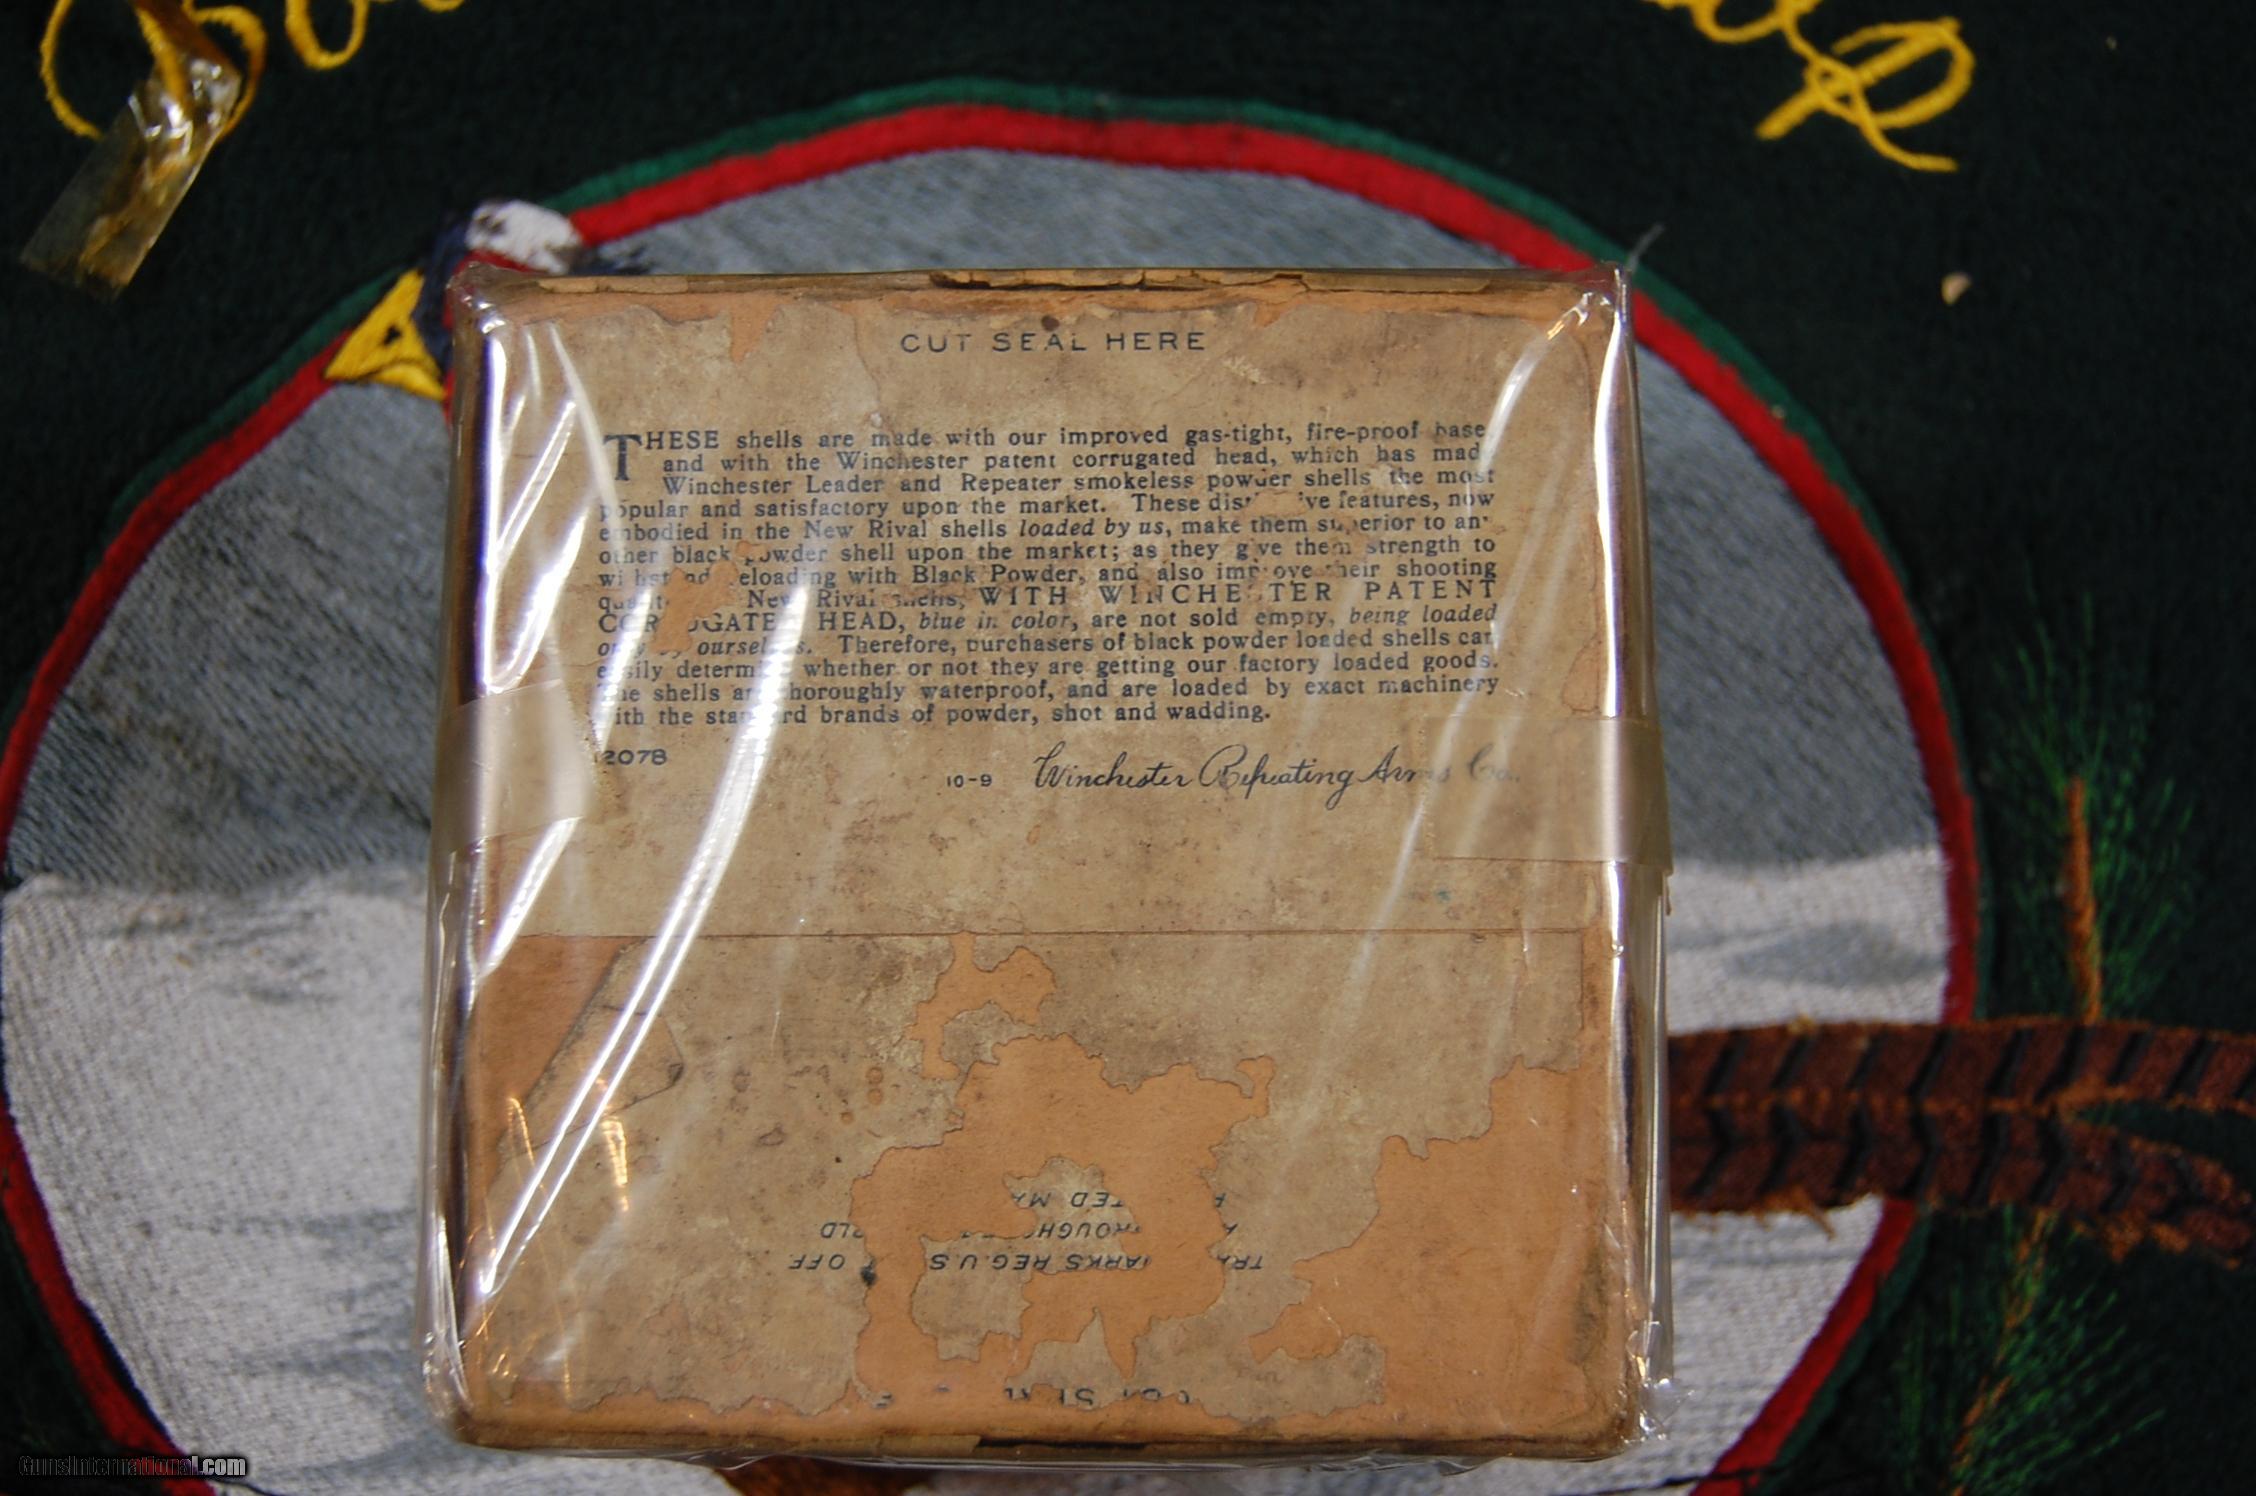 CUT SEAL HERE
THESE shells are made with our improved gas-tight, fire-proof base
and with the Winchester patent corrugated head, which has mad
Winchester Leader and Repeater smokeless powder shells the most
popular and satisfactory upon the market. These dist ive features, now
embodied in the New Rival shells loaded by us, make them superior to an
other black powder shell upon the market; as they give them strength to
withstand reloading with Black Powder, and also improve their shooting
qualit New Rival shells, WITH WINCHESTER PATENT
CORRUGATED HEAD, blue in color, are not sold empty, being loaded
only by ourselves. Therefore, purchasers of black powder loaded shells can
easily determine whether or not they are getting our factory loaded goods.
The shells are thoroughly waterproof, and are loaded by exact machinery
with the standard brands of powder, shot and wadding.
2078
10-9 Winchester Repeating Arms Co.
TED MA
ROUGH LD
TRA MARKS REG.U.S OFF.
GunsInternational.com